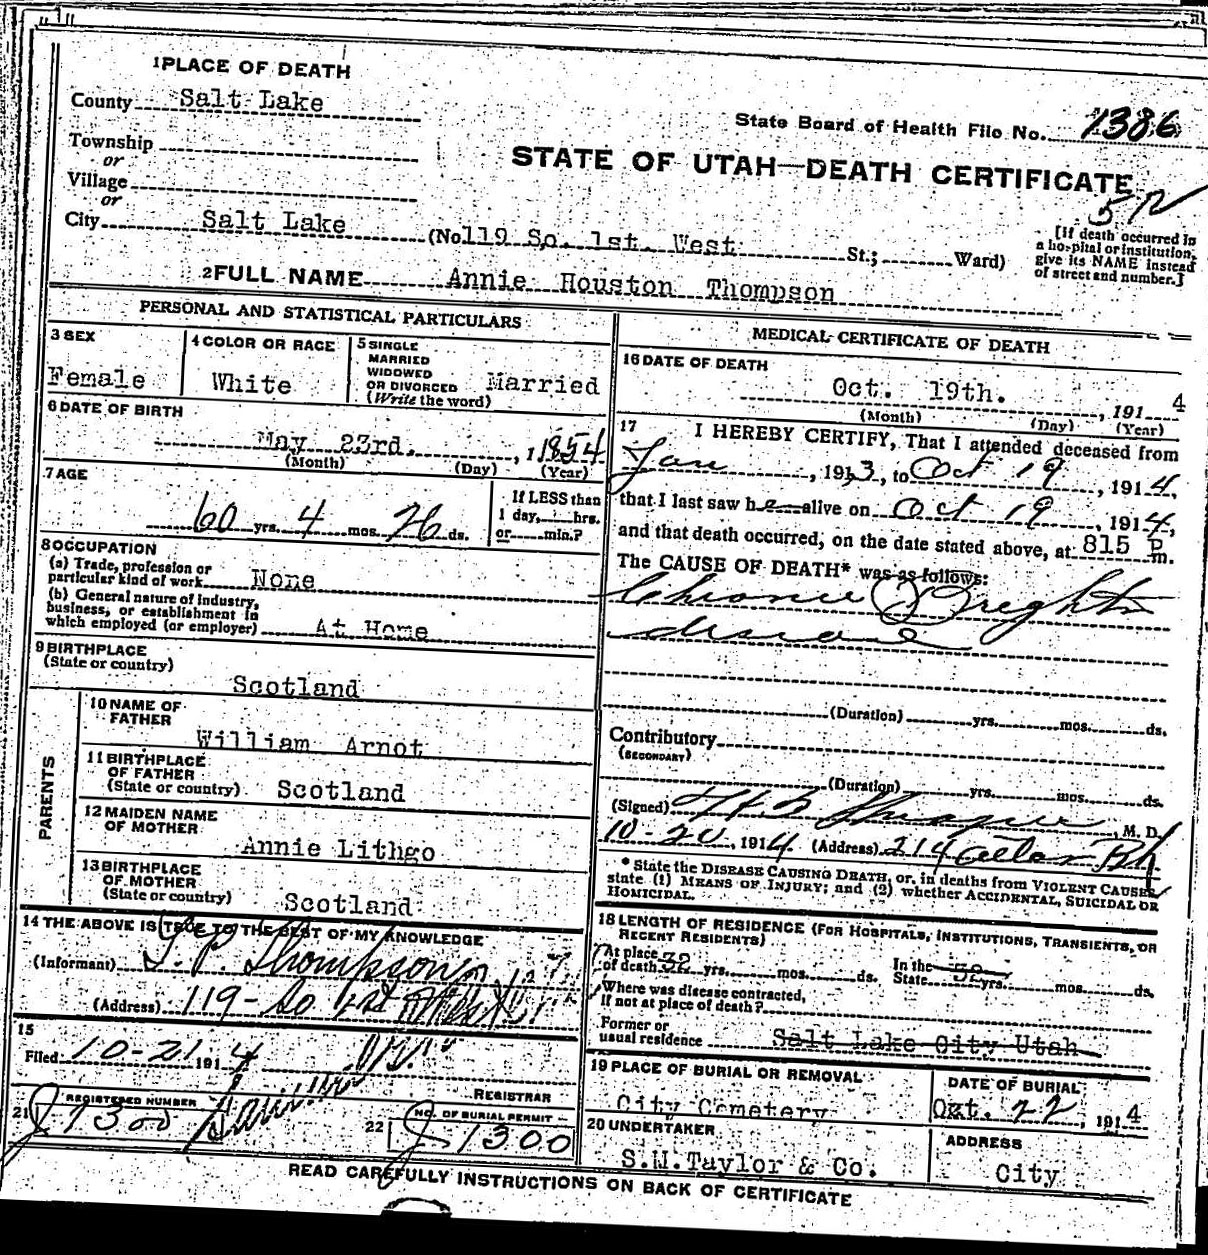 1 PLACE OF DEATH
County Salt Lake
State Board of Health File No. 1386
Township
or
Village
or
STATE OF UTAH—DEATH CERTIFICATE
City Salt Lake (No 119 So. 1st. West St.; Ward)
[If death occurred in
a hospital or institution,
give its NAME instead
of street and number.]
2 FULL NAME Annie Houston Thompson
PERSONAL AND STATISTICAL PARTICULARS
3 SEX
Female
4 COLOR OR RACE
White
5 SINGLE
MARRIED
WIDOWED
OR DIVORCED
(Write the word)
Married
6 DATE OF BIRTH
May 23rd. , 1 1854
(Month) (Day) (Year)
7 AGE
60 yrs. 4 mos. 26 ds.
If LESS than
1 day, hrs.
or min.?
8 OCCUPATION
(a) Trade, profession or
particular kind of work None
(b) General nature of industry,
business, or establishment in
which employed (or employer) At Home
9 BIRTHPLACE
(State or country)
Scotland
PARENTS
10 NAME OF
FATHER
William Arnot
11 BIRTHPLACE
OF FATHER
(State or country) Scotland
12 MAIDEN NAME
OF MOTHER
Annie Lithgo
13 BIRTHPLACE
OF MOTHER
(State or country) Scotland
14 THE ABOVE IS TRUE TO THE BEST OF MY KNOWLEDGE
(Informant) Thompson
(Address) 119 - So
15
Filed 10-21 1914
REGISTRAR
REGISTERED NUMBER
21 J 1300
NO. OF BURIAL PERMIT
22 J 1300
MEDICAL CERTIFICATE OF DEATH
16 DATE OF DEATH
Oct. 19th. , 191 4
(Month) (Day) (Year)
17 I HEREBY CERTIFY, That I attended deceased from
Jan , 1913, to Oct 19 , 1914,
that I last saw her alive on Oct 19 , 1914,
and that death occurred, on the date stated above, at 815 P m.
The CAUSE OF DEATH* was as follows:
Chronic Brights
disease
(Duration) yrs. mos. ds.
Contributory
(SECONDARY)
(Duration) yrs. mos. ds.
(Signed) , M. D.
10-20, 1914. (Address) 214
* State the DISEASE CAUSING DEATH, or, in deaths from VIOLENT CAUSES
state (1) MEANS OF INJURY; and (2) whether ACCIDENTAL, SUICIDAL OR
HOMICIDAL.
18 LENGTH OF RESIDENCE (FOR HOSPITALS, INSTITUTIONS, TRANSIENTS, OR
RECENT RESIDENTS)
At place
of death 32 yrs. mos. ds.
In the
State 32 yrs. mos. ds.
Where was disease contracted,
if not at place of death?
Former or
usual residence Salt Lake City Utah
19 PLACE OF BURIAL OR REMOVAL
City Cemetery
DATE OF BURIAL
Oct. 22 , 1914
20 UNDERTAKER
S.M.Taylor & Co.
ADDRESS
City
READ CAREFULLY INSTRUCTIONS ON BACK OF CERTIFICATE